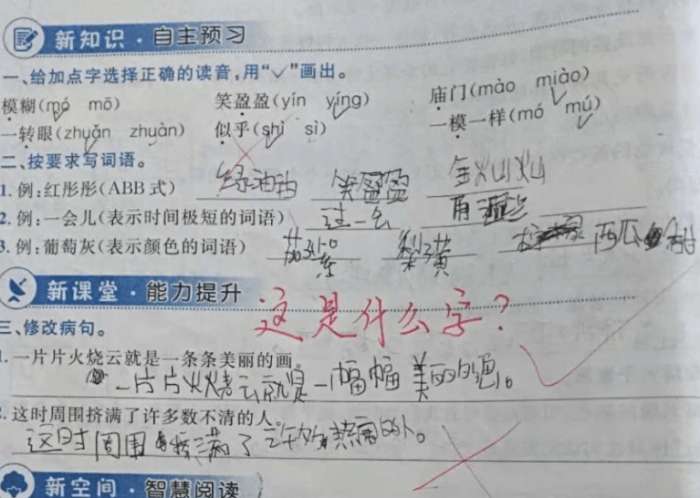 新知识·自主预习
一、给加点字选择正确的读音,用“✓”画出。
模糊(mó mō) 笑盈盈(yín yíng) 庙门(mào miào)
一转眼(zhuǎn zhuàn) 似乎(shì sì) 一模一样(mó mú)
二、按要求写词语。
1. 例:红彤彤(ABB式) 绿油油 笑盈盈 金灿灿
2. 例:一会儿(表示时间极短的词语) 过一会
3. 例:葡萄灰(表示颜色的词语) 茄子紫 梨子黄 西瓜
新课堂·能力提升
这是什么字?
三、修改病句。
1. 一片片火烧云就是一条条美丽的画。
一片片火烧云就是一幅幅美丽的画。
2. 这时周围挤满了许多数不清的人。
这时周围挤满了许多热闹的人。
新空间·智慧阅读